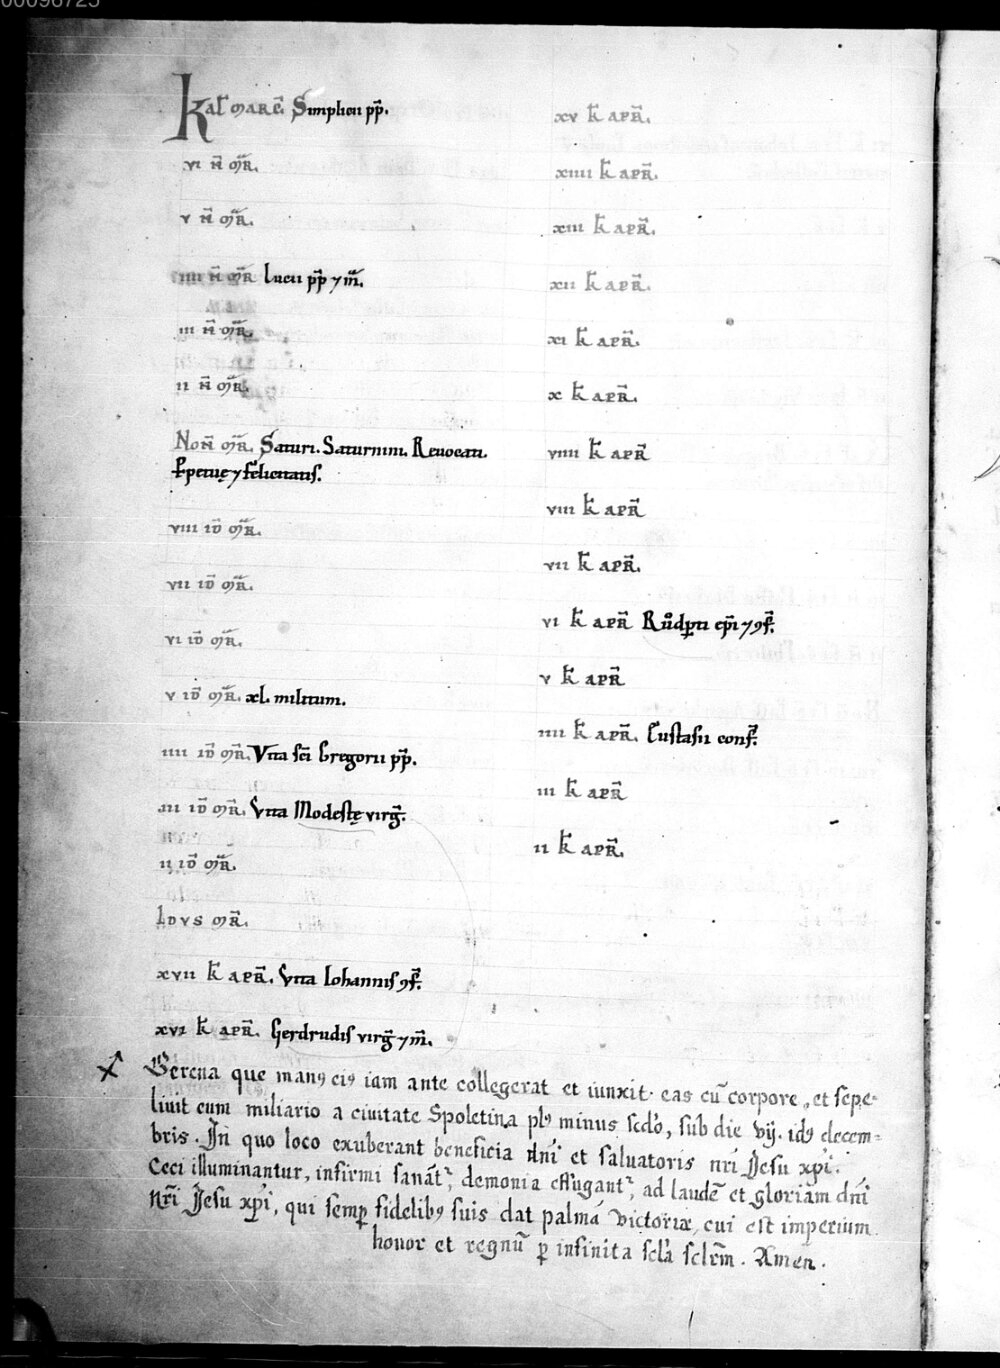 00096725
Kal̅ MARC̅. Simplicii pp̅.
VI N̅ MR̅.
V N̅ MR̅.
IIII N̅ MR̅ Lucii pp̅ ⁊ m̅.
III N̅ MR̅.
II N̅ MR̅.
NON̅ MR̅. Saturi. Saturnini. Reuocati.
Ꝑpetuę ⁊ felicitatis.
VIII ID̅ MR̅.
VII ID̅ MR̅.
VI ID̅ MR̅.
V ID̅ MR̅. xl. militum.
IIII ID̅ MR̅. Vita sc̅i Gregorii pp̅.
III ID̅ MR̅. Vita Modestę virg̅.
II ID̅ MR̅.
IDVS MR̅.
XVII K̅ APR̅. Vita Iohannis ꝯf̅.
XVI K̅ APR̅. Gerdrudis virg̅ ⁊ m̅.
XV K̅ APR̅.
XIIII K̅ APR̅.
XIII K̅ APR̅.
XII K̅ APR̅.
XI K̅ APR̅.
X K̅ APR̅.
VIIII K̅ APR̅
VIII K̅ APR̅
VII K̅ APR̅.
VI K̅ APR̅ Růdꝑti ep̅i ⁊ ꝯf̅.
V K̅ APR̅
IIII K̅ APR̅. Eustasii conf̅.
III K̅ APR̅
II K̅ APR̅.
Serena que manꝰ eiꝰ iam ante collegerat et iunxit eas cu̅ corpore, et sepe-
liuit eum miliario a ciuitate Spoletina plꝰ minus scd̅o, sub die vij. idꝰ decem=
bris. In quo loco exuberant beneficia dn̅i et saluatoris nr̅i Jesu xp̅i.
Ceci illuminantur, infirmi sanāt᷑, demonia effugant᷑, ad laudē et gloriam dn̅i
nr̅i Jesu xp̅i, qui semꝑ fidelibꝰ suis dat palmā victoriæ, cui est imperium
honor et regnū ꝑ infinita scl̅a scl̅rm̅. Amen.